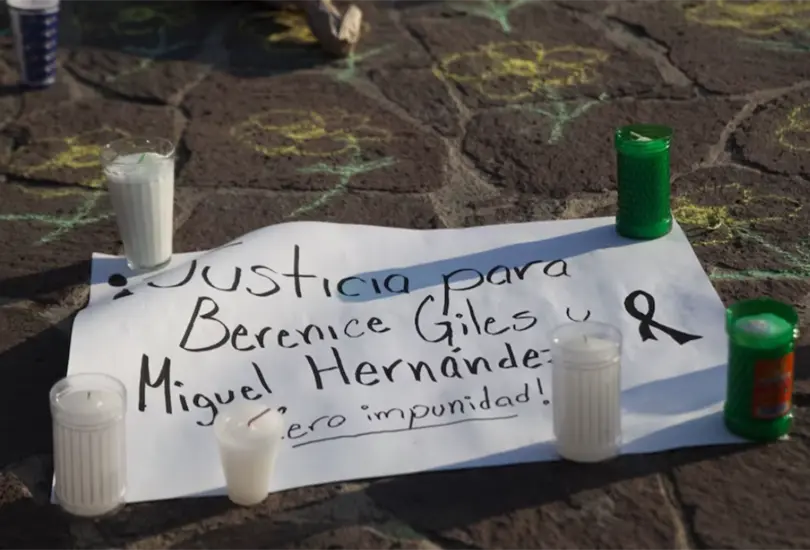 ¡Justicia para
Berenice Giles y
Miguel Hernández
¡Cero impunidad!